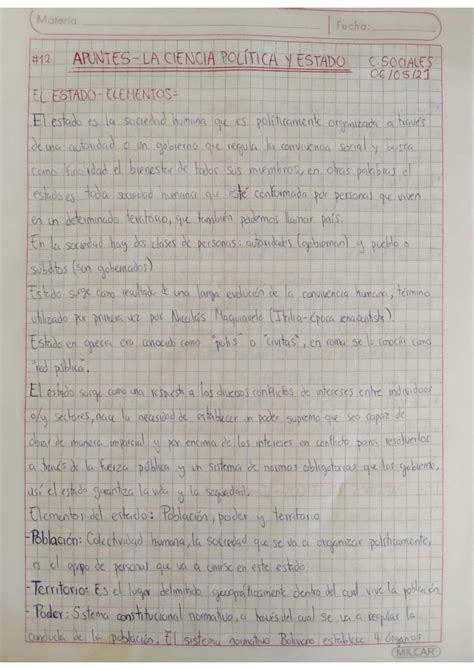 Materia:
Fecha:
#12 APUNTES-LA CIENCIA POLÍTICA Y ESTADO C.SOCIALES
06/05/21
EL ESTADO-ELEMENTOS=
El estado es la sociedad humana que es políticamente organizada a través
de una autoridad o un gobierno que regula la convivencia social y busca
como finalidad el bienestar de todos sus miembros, en otras palabras el
estado es toda sociedad humana que esté conformada por personas que viven
en un determinado territorio, que también podemos llamar país.
En la sociedad hay dos clases de personas: autoridades (gobiernan) y pueblo o
subditos (son gobernados)
Estado surge como resultado de una larga evolución de la convivencia humana, término
utilizado por primera vez por Nicolás Maquiavelo (Italia-época renacentista).
Estado en grecia era conocido como "polis" o "civitas", en roma se lo conocía como
"red pública".
El estado surge como una respuesta a los diversos conflictos de intereses entre individuos
o/y sectores, nace la necesidad de establecer un poder supremo que sea capaz de
obrar de manera imparcial y por encima de los intereses en conflicto para resolverlos
a través de la fuerza pública y un sistema de normas obligatorias que los gobierne,
así el estado garantiza la vida y la seguridad.
Elementos del estado: Población, poder y territorio
-Población: Colectividad humana, la sociedad que se va a organizar políticamente,
es el grupo de personas que va a unirse en este estado.
-Territorio: Es el lugar delimitado geográficamente dentro del cual vive la población
-Poder: Sistema constitucional normativo, a través del cual se va a regular la
conducta de la población. El sistema normativo Boliviano establece 4 órganos
MILCAR